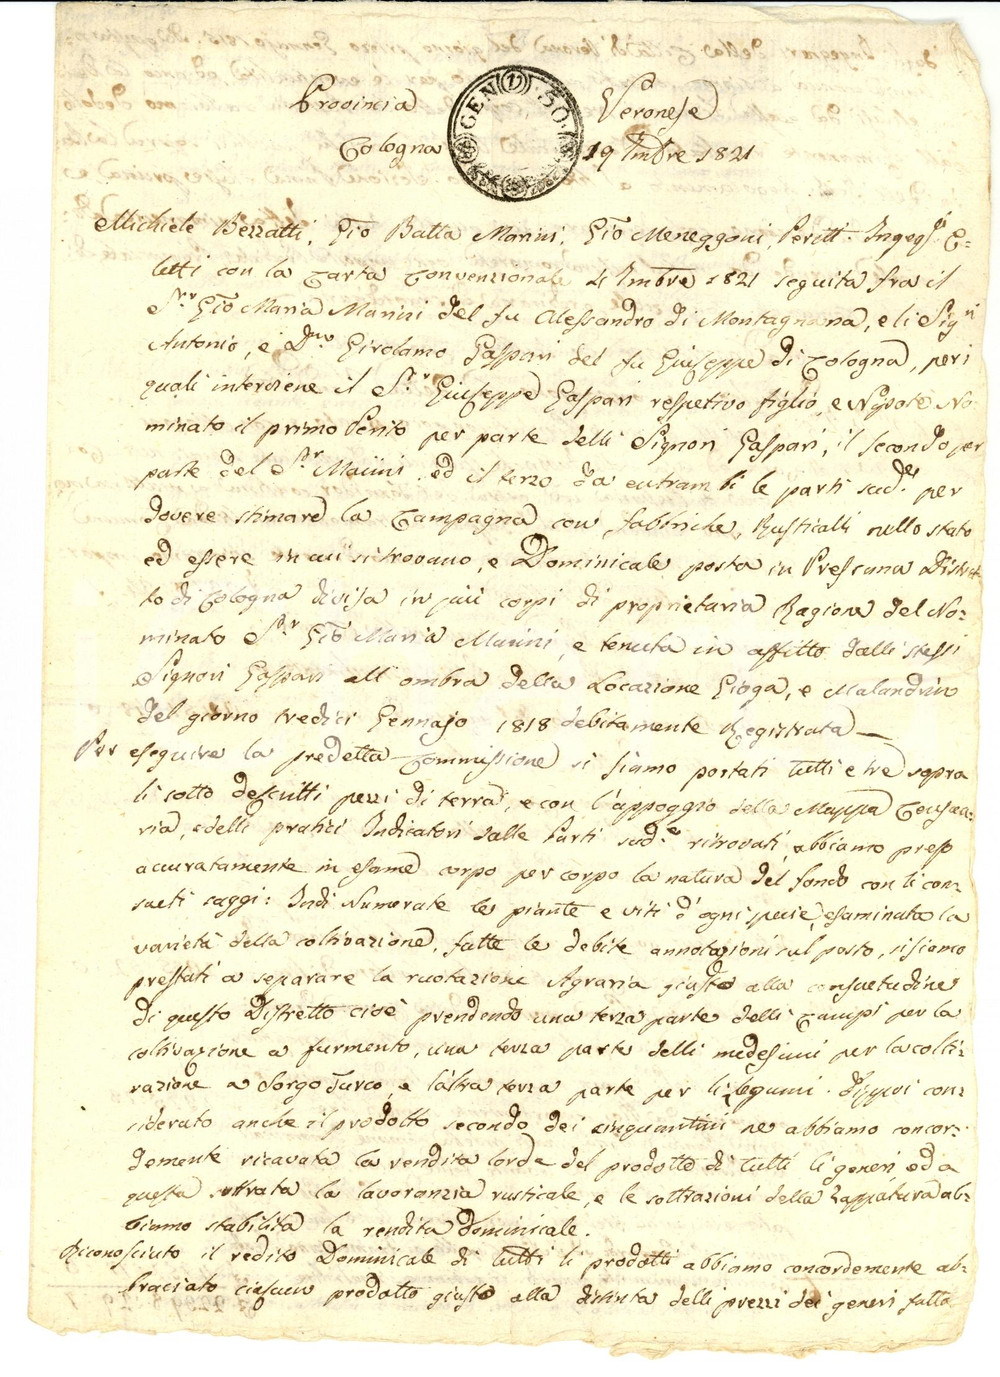 Provincia Veronese
GEN 30
Cologna 19 9mbre 1821
Michiele Bezzatti, Gio Batta Marini, Gio Meneggoni, Periti Ingegri E-
letti con la Carta Convenzionale 4 9mbre 1821 seguita fra il
Sr Gio Maria Marini del fu Alessandro di Montagnana, e li Sigri
Antonio, e Dn Girolamo Gaspari del fu Giuseppe di Cologna, per i
quali interviene il Sr Giuseppe Gaspari respetivo figlio, e Nipote No-
minato il primo Perito per parte delli Signori Gaspari, il secondo per
parte del Sr Marini, ed il terzo da entrambi le parti sudde per
dovere stimare la Campagna con fabbriche, Rusticalli nello stato
ed essere in cui si trovano, e Dominicale posta in Pressana Distret-
to di Cologna divisa in più corpi di proprietaria Ragione del No-
minato Sr Gio Maria Marini, e tenuta in affitto dalli stessi
Signori Gaspari all ombra della Locazione Gioga, e Malandrin
del giorno tredici Gennajo 1818 debitamente Registrata
Per eseguire la predetta Commissione si siamo portati tutti e tre sopra
li sotto descritti pezzi di terra, e con l'appoggio della Mappa Censua-
ria, e delli pratici Indicatori dalle Parti sudde ritrovati, abbiamo preso
accuratamente in esame corpo per corpo la natura del fondo con li con-
sueti saggi: Indi Numerate le piante e viti d'ogni specie, esaminata la
varietà della coltivazione, fatte le debite annotazioni sul posto, si siamo
prestati a separare la ruotazione Agraria giusto alla consuetudine
di questo Distretto cioè prendendo una terza parte delli Campi per la
coltivazione a furmento, una terza parte delli medesimi per la colti-
vazione a Sorgo Turco, e l'altra terza parte per li legumi. Dippoi con-
siderato anche il prodotto secondo dei cinquantini ne abbiamo concor-
demente ricavata la rendita lorda del prodotto di tutti li generi, ed a
questa sottrata la lavoranzia rusticale, e le sottrazioni della Zappatura ab-
biamo stabilita la rendita Dominicale.
Riconosciuto il redito Dominicale di tutti li prodotti abbiamo concordemente ab-
braciato ciascun prodotto giusto alla distinta delli prezzi dei generi fatta